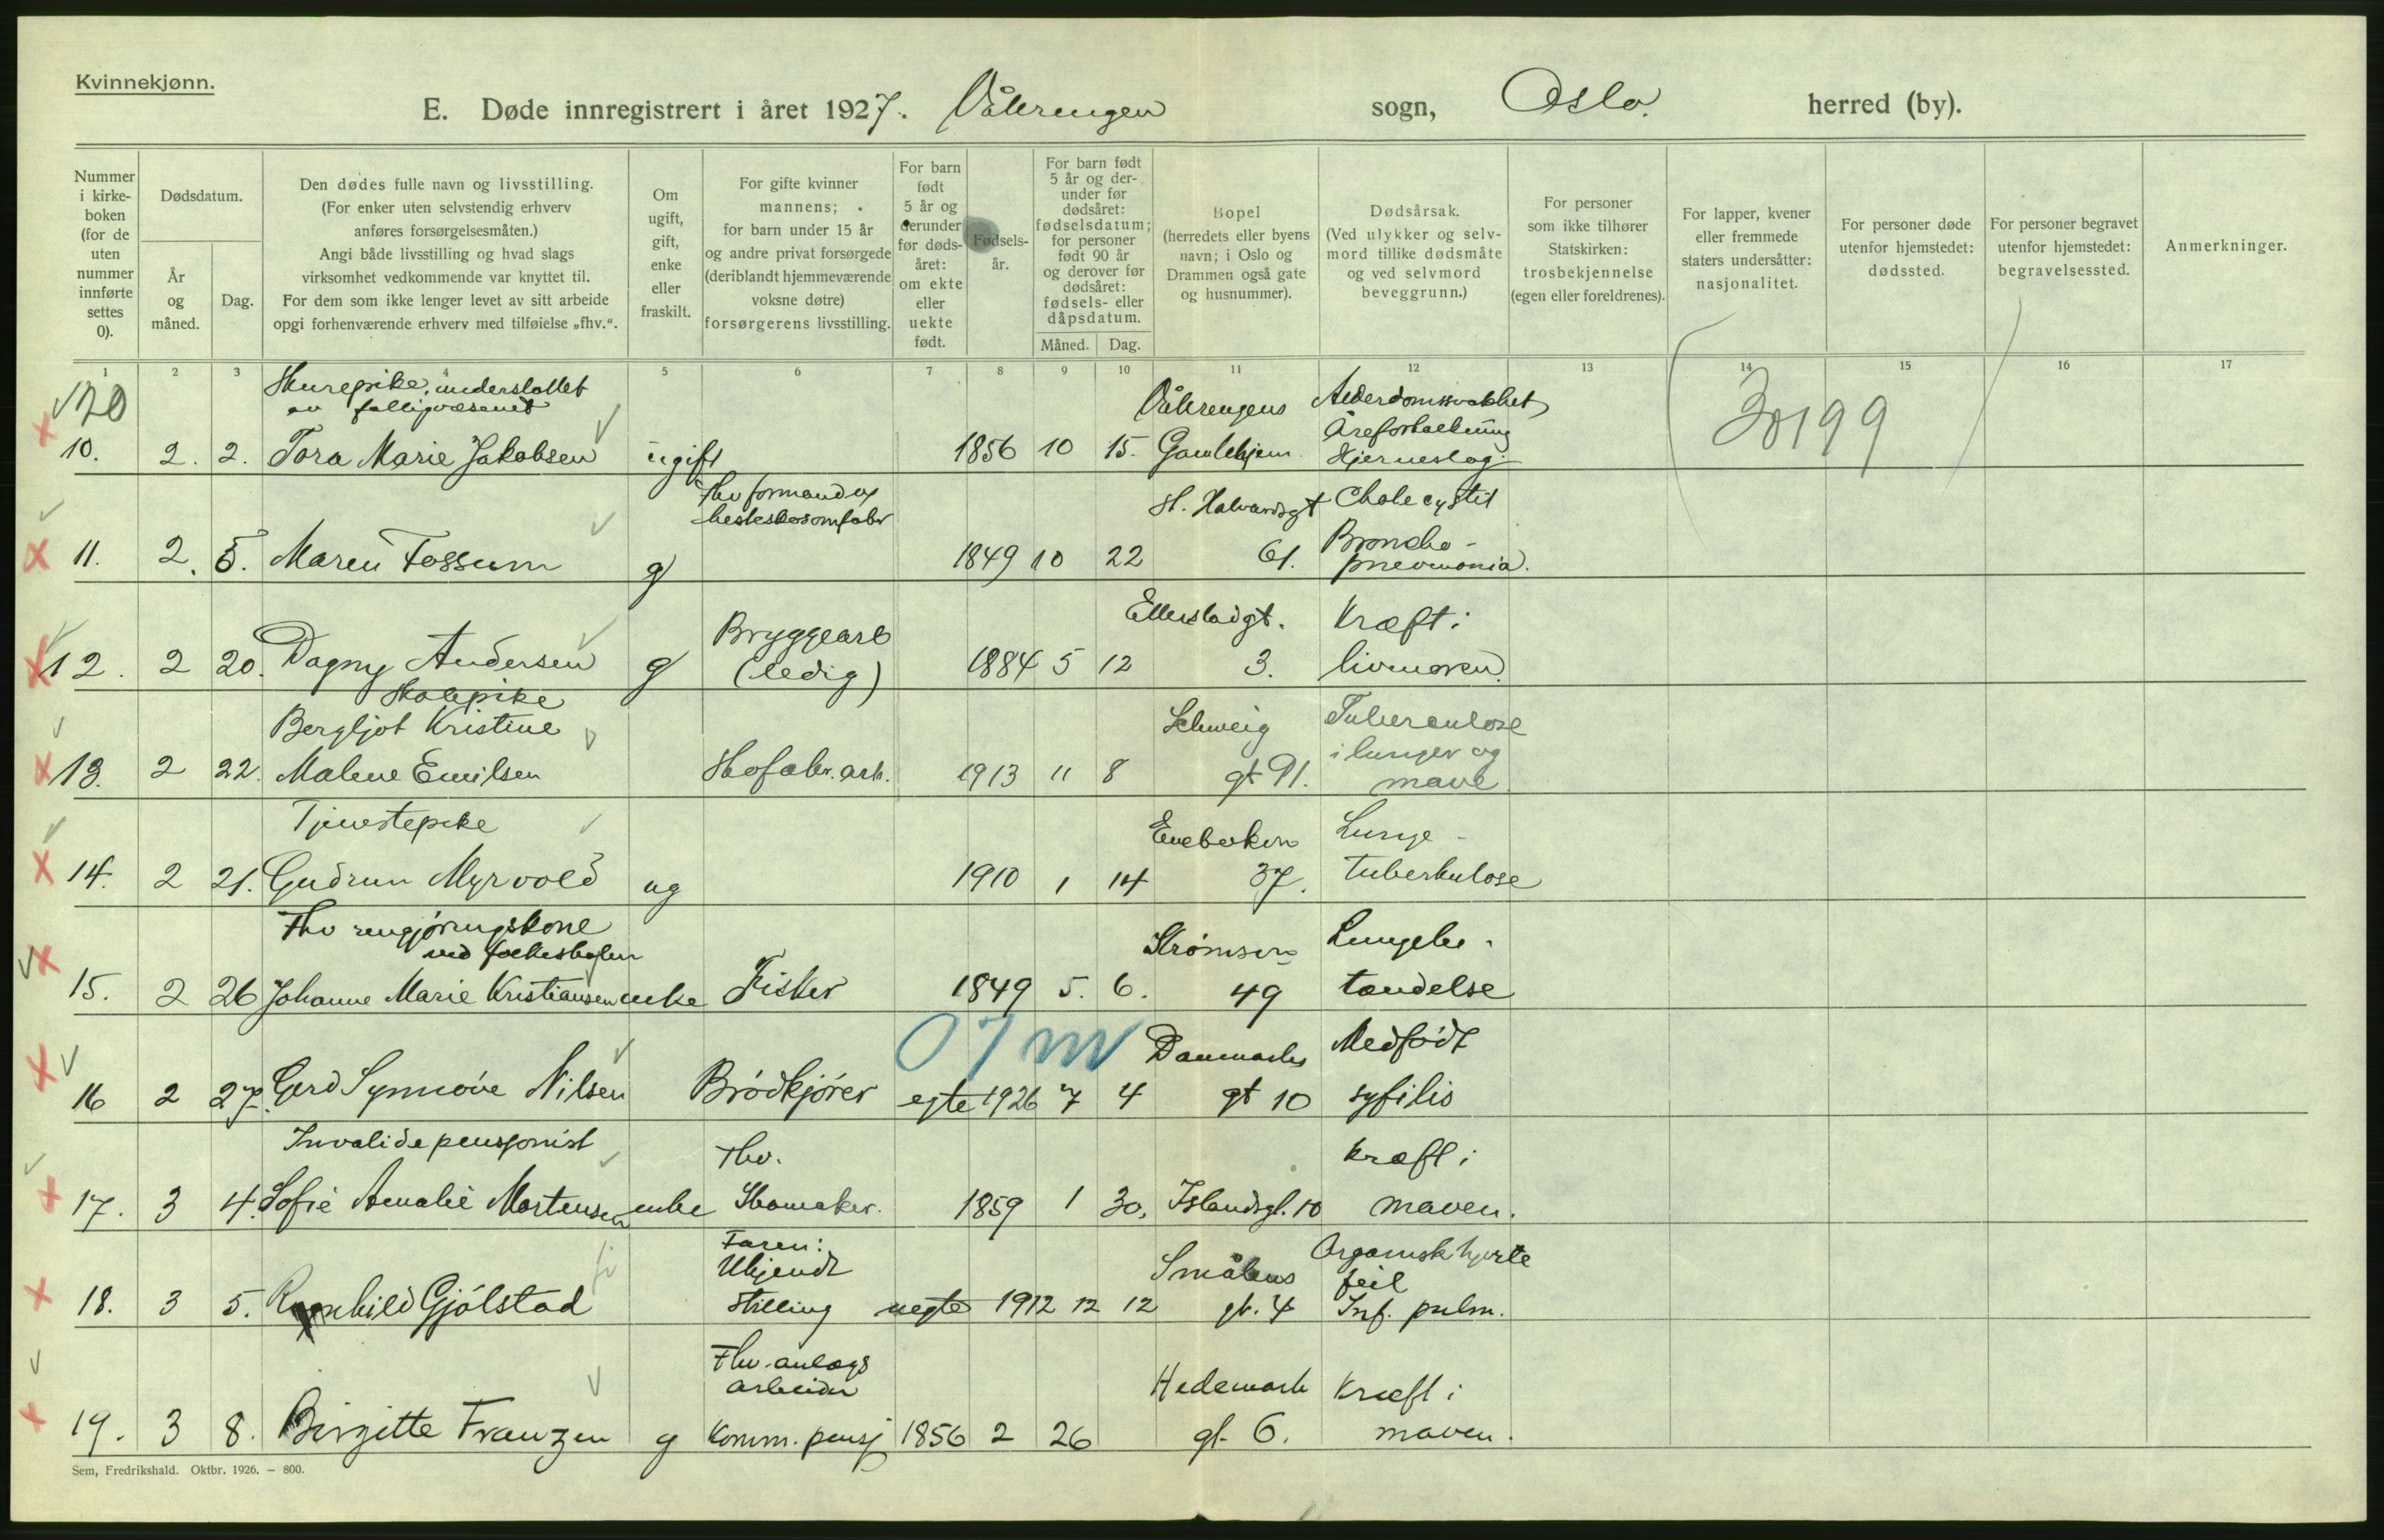 Kvinnekjønn.
E. Døde innregistrert i året 1927. Vålerengen sogn, Oslo. herred (by).
Nummer i kirke- boken (for de uten nummer innførte settes 0).
Dødsdatum.
År og måned.
Dag.
Den dødes fulle navn og livsstilling.
(For enker uten selvstendig erhverv
anføres forsørgelsesmåten.)
Angi både livsstilling og hvad slags
virksomhet vedkommende var knyttet til.
For dem som ikke lenger levet av sitt arbeide
opgi forhenværende erhverv med tilføielse „fhv.“.
Om ugift, gift, enke eller fraskilt.
For gifte kvinner
mannens;
for barn under 15 år
og andre privat forsørgede
(deriblandt hjemmeværende
voksne døtre)
forsørgerens livsstilling.
For barn født 5 år og derunder før døds- året: om ekte eller uekte født.
Fødsels- år.
For barn født 5 år og der- under før dødsåret: fødselsdatum; for personer født 90 år og derover før dødsåret: fødsels- eller dåpsdatum.
Måned.
Dag.
Bopel
(herredets eller byens
navn; i Oslo og
Drammen også gate
og husnummer).
Dødsårsak.
(Ved ulykker og selv-
mord tillike dødsmåte
og ved selvmord
beveggrunn.)
For personer
som ikke tilhører
Statskirken:
trosbekjennelse
(egen eller foreldrenes).
For lapper, kvener
eller fremmede
staters undersåtter:
nasjonalitet.
For personer døde
utenfor hjemstedet:
dødssted.
For personer begravet
utenfor hjemstedet:
begravelsessted.
Anmerkninger.
1 2 3 4 5 6 7 8 9 10 11 12 13 14 15 16 17
120
understøttet
av
Vålerengens
Åreforkalkning
30199
10. 2. 2. Tora Marie Jakobsen ugift 1856 10 15. Gamlehjem Hjerneslag.
Fhv formand ved
St. Halvardsgt Cholecystit
Broncho-
11. 2. 5. Maren Fossum g 1849 10 22 61. pneumonia.
Bryggearb Kræft i
12. 2 20. Dagny Andersen g (ledig) 1884 5 12 3. livmoren.
Skolepike
Bergljot Kristine Schweig Tuberculose
i lunger og
13. 2 22. Malene Emilsen Skofabr. arb. 1913 11 8 gt 91. mave.
Tjenestepike
Enebakkv Lunge-
14. 2 21. Gudrun Myrvold ug 1910 1 14 37. tuberkulose
Fhv rengjøringskone
ved folkeskolen
Strømsv Lungebe-
15. 2 26 Johanne Marie Kristiansen enke Fisker 1849 5. 6. 49 tændelse
07 m
Danmarks Medfødt
16 2 27. Gerd Synnøve Nilsen Brødkjører egte 1926 7 4 gt 10 syfilis
Invalidepensjonist
Fhv. Kræft i
17. 3 4. Sofie Amalie Mortensen enke Skomaker. 1859 1 30. Islandsgt. 10 maven.
Faren:
Ukjendt
Smålens
Organisk hjerte
feil
18. 3 5. Ragnhild Gjølstad stilling uegte 1912 12 12 gt. 4 Inf. pulm.
Fhv. anlægs
arbeider
Hedemark Kræft i
19. 3 8. Birgitte Franzen g Komm. pensj 1856 2 26 gt. 6. maven.
Sem, Fredrikshald. Oktbr. 1926. – 800.